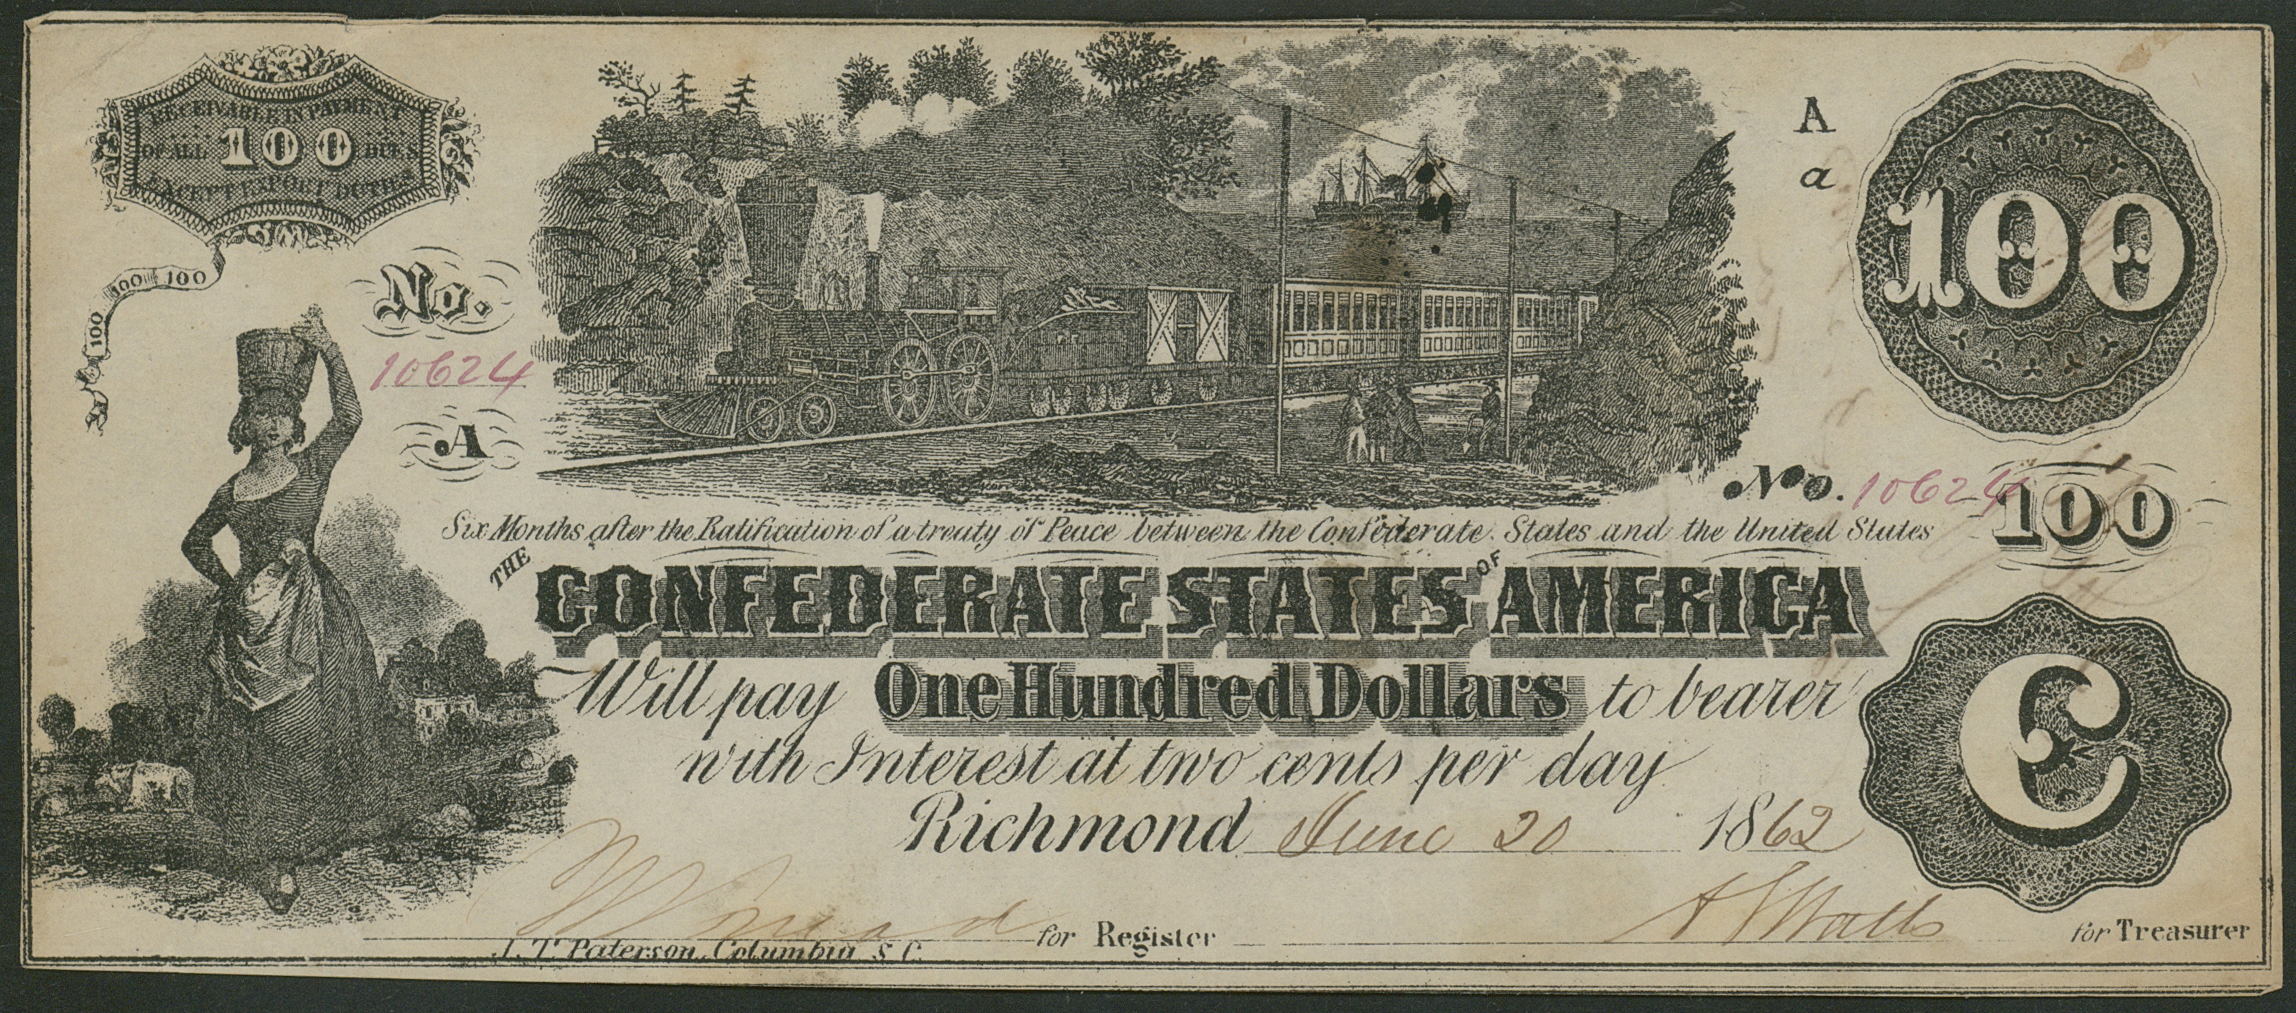 RECEIVABLE IN PAYMENT
OF ALL 100 DUES
EXCEPT EXPORT DUTIES
100 100 100
No.
10624
A
A
a
100
No. 10624
100
Six Months after the Ratification of a treaty of Peace between the Confederate States and the United States
THE CONFEDERATE STATES OF AMERICA
Will pay One Hundred Dollars to bearer
with Interest at two cents per day
Richmond June 20 1862
C
for Register
for Treasurer
J. T. Paterson, Columbia S C.